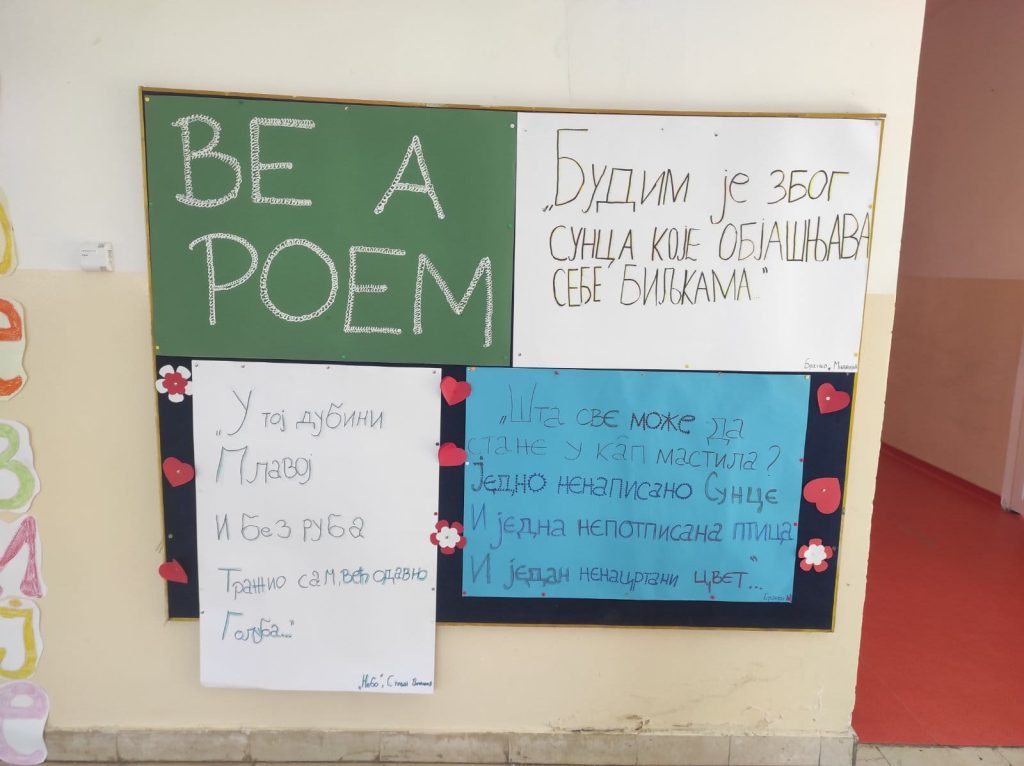 BE A
POEM
„Будим је због
сунца које објашњава
себе биљкама..“
„У тој дубини
Плавој
И без руба
Тражио сам, већ одавно
Голуба...“
„Небо“,
„Шта све може да
стане у кап мастила?
Једно ненаписано Сунце
И једна непотписана птица
И један ненацртани цвет...“